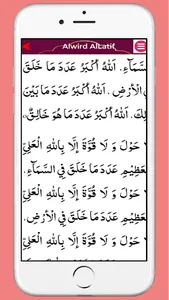 Alwird AlLatif
السَّمَآءِ. اَللهُ اَكْبَرُ عَدَدَ مَا خَلَقَ
الْاَرْضِ. اَللهُ اَكْبَرُ عَدَدَ مَا بَيْنَ
لِكَ. اَللهُ اَكْبَرُ عَدَدَ مَا هُوَ خَالِقٌ
حَوْلَ وَ لَا قُوَّةَ اِلَّا بِاللهِ الْعَلِيِّ
الْعَظِيْمِ عَدَدَ مَا خَلَقَ فِي السَّمَآءِ.
حَوْلَ وَ لَا قُوَّةَ اِلَّا بِاللهِ الْعَلِيِّ
الْعَظِيْمِ عَدَدَ مَا خَلَقَ فِي الْاَرْضِ.
حَوْلَ وَ لَا قُوَّةَ اِلَّا بِاللهِ الْعَلِيِّ